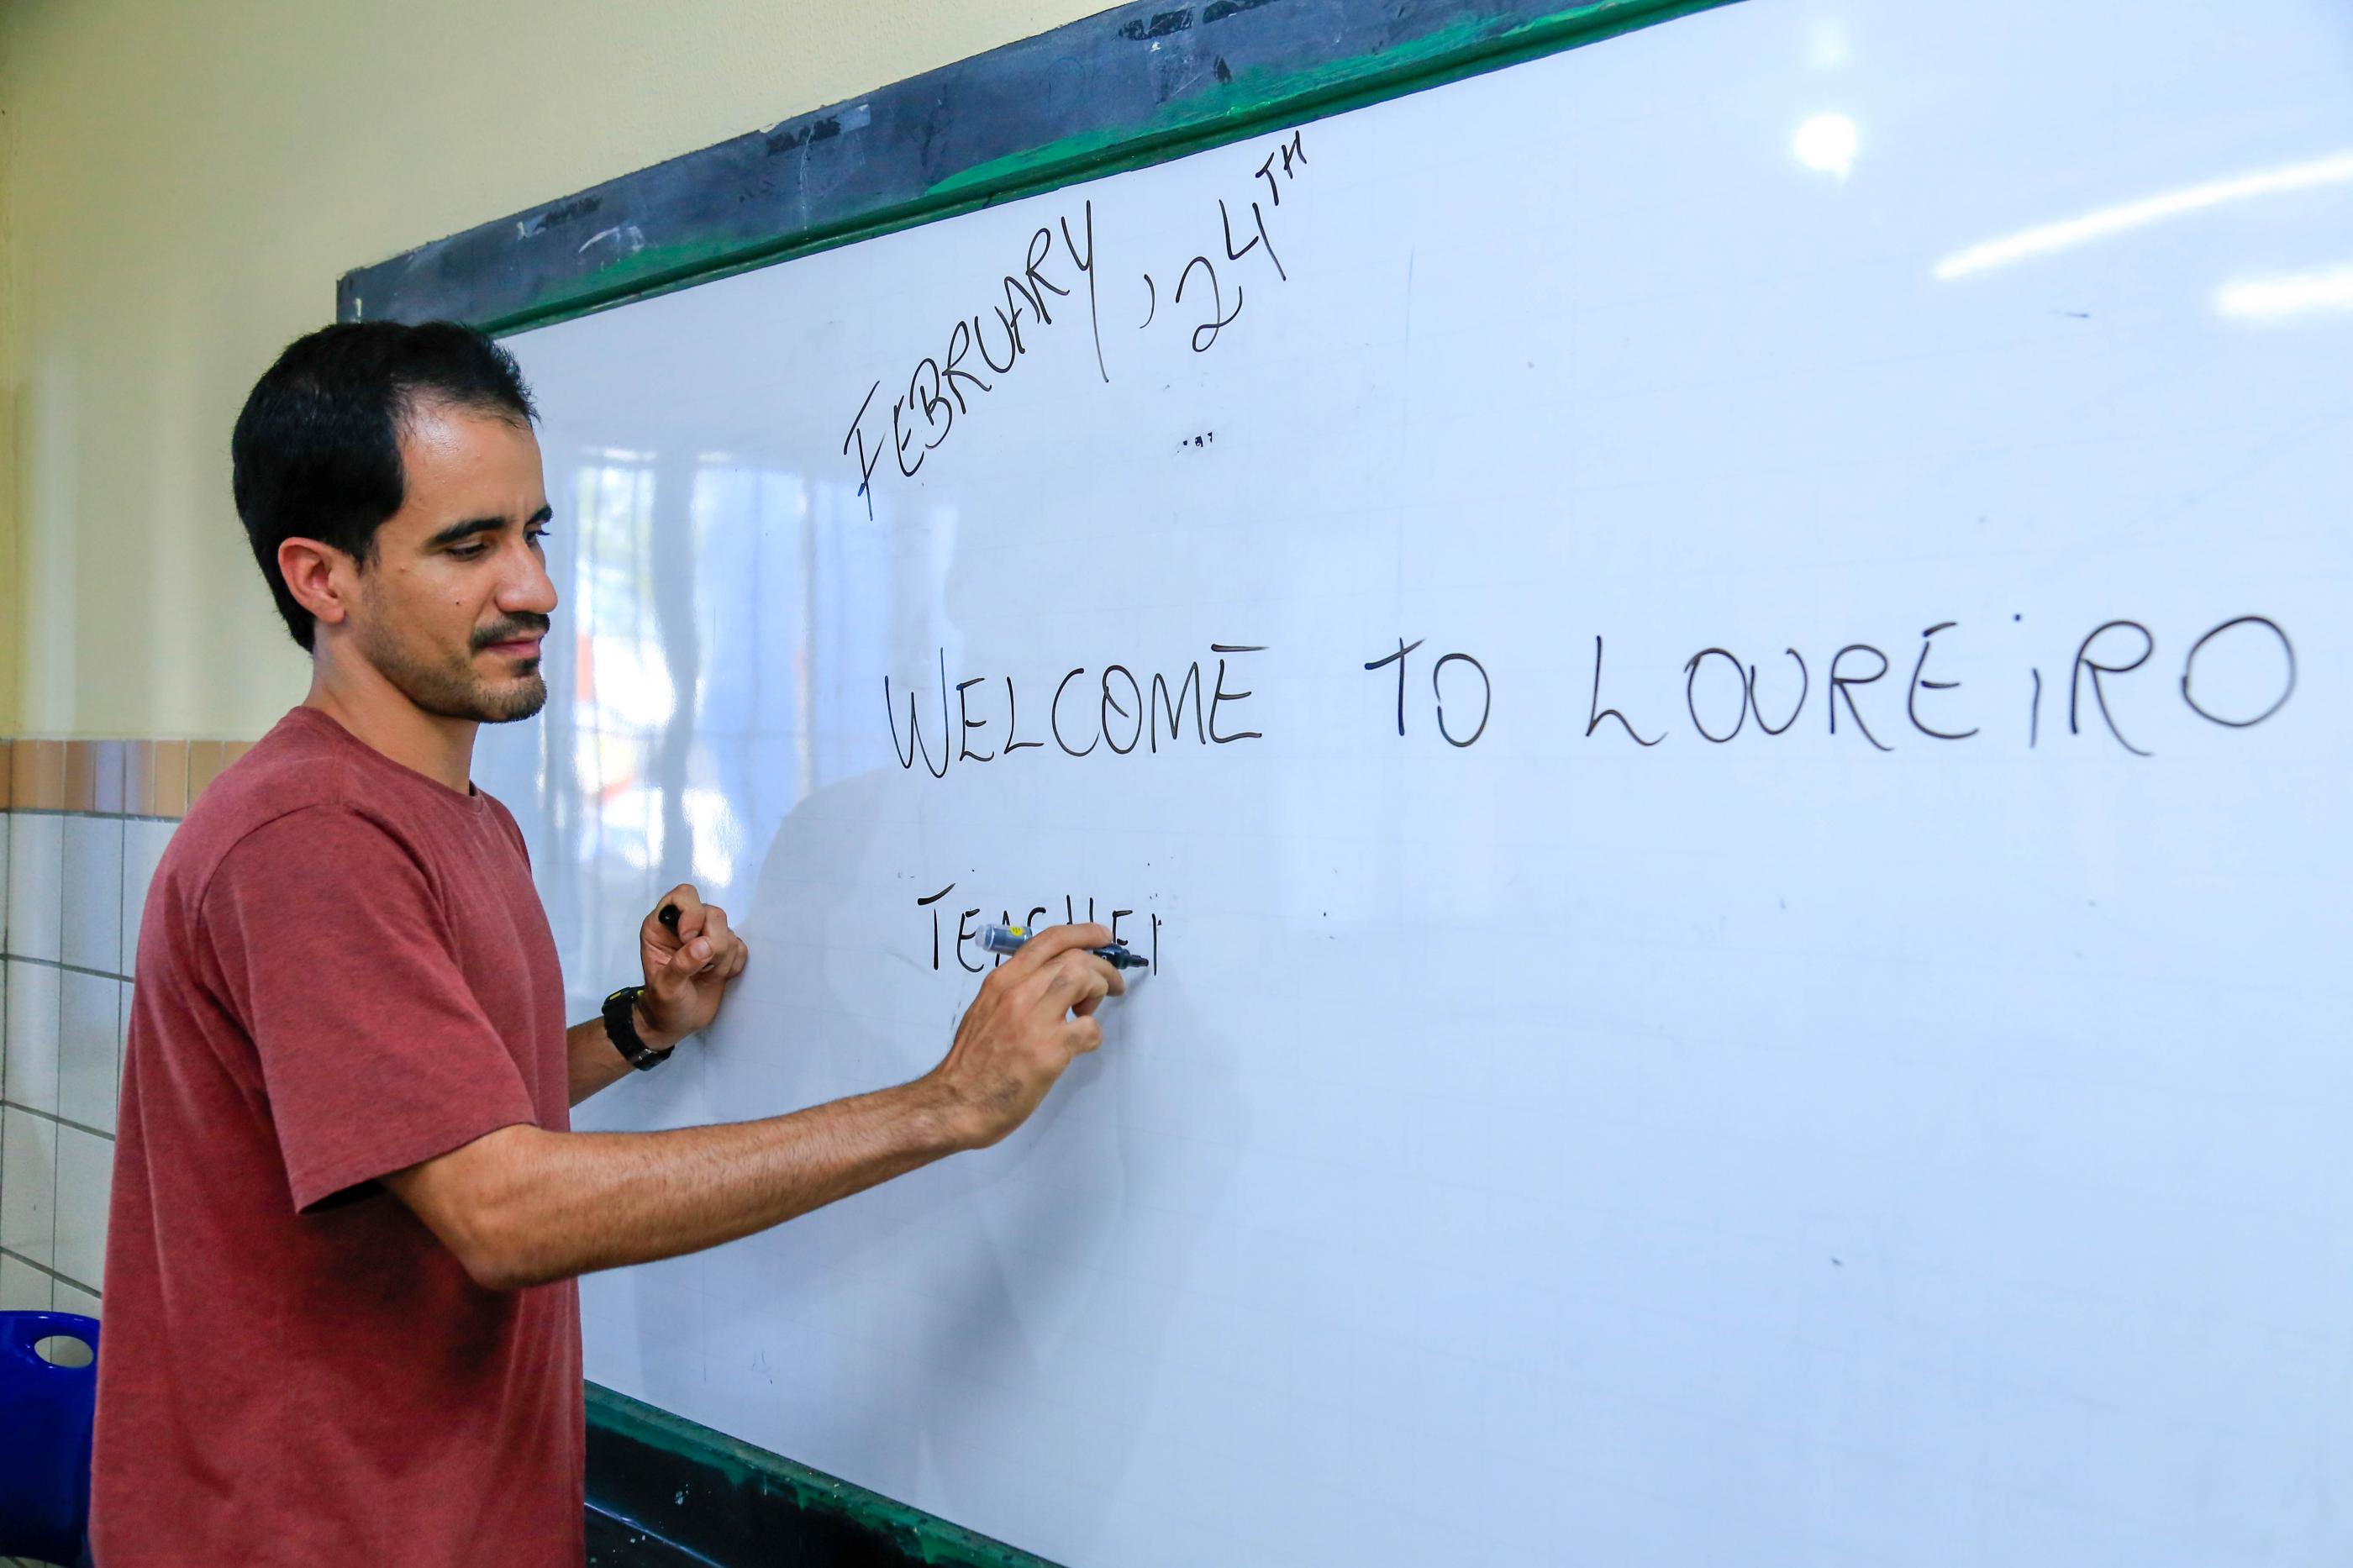 FEBRUARY, 24TH
WELCOME TO LOUREiRO
TEACHE